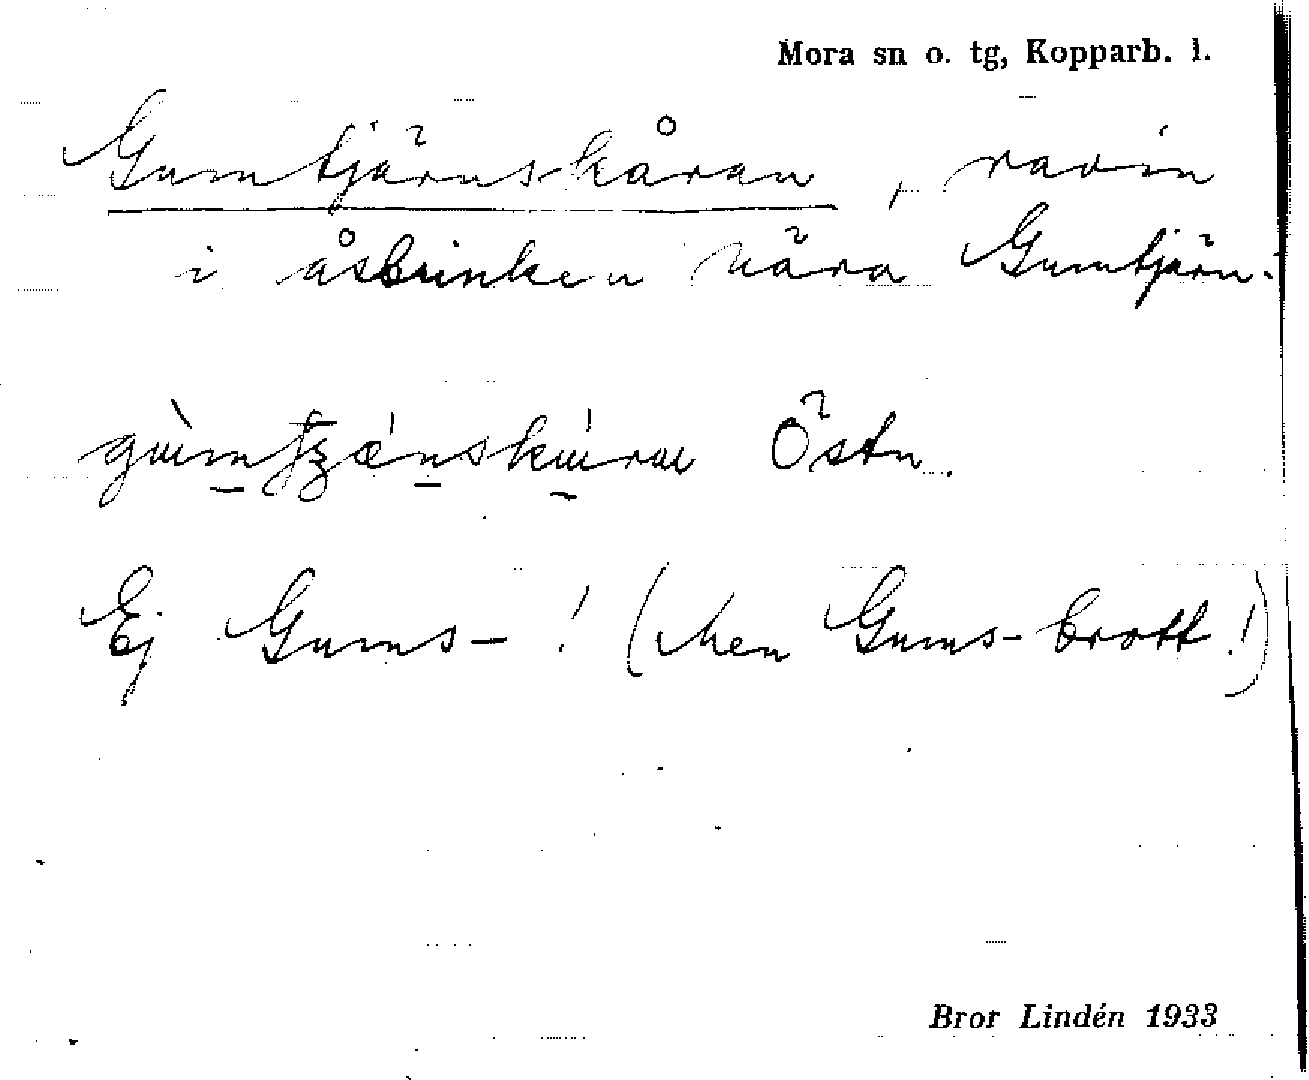 Mora sn o. tg, Kopparb. l.
Gumtjärnskåran, ravin
i åsbrinken nära Gumtjärn.
Östn.
Ej Gums- ! (Men Gums-brott!)
Bror Lindén 1933